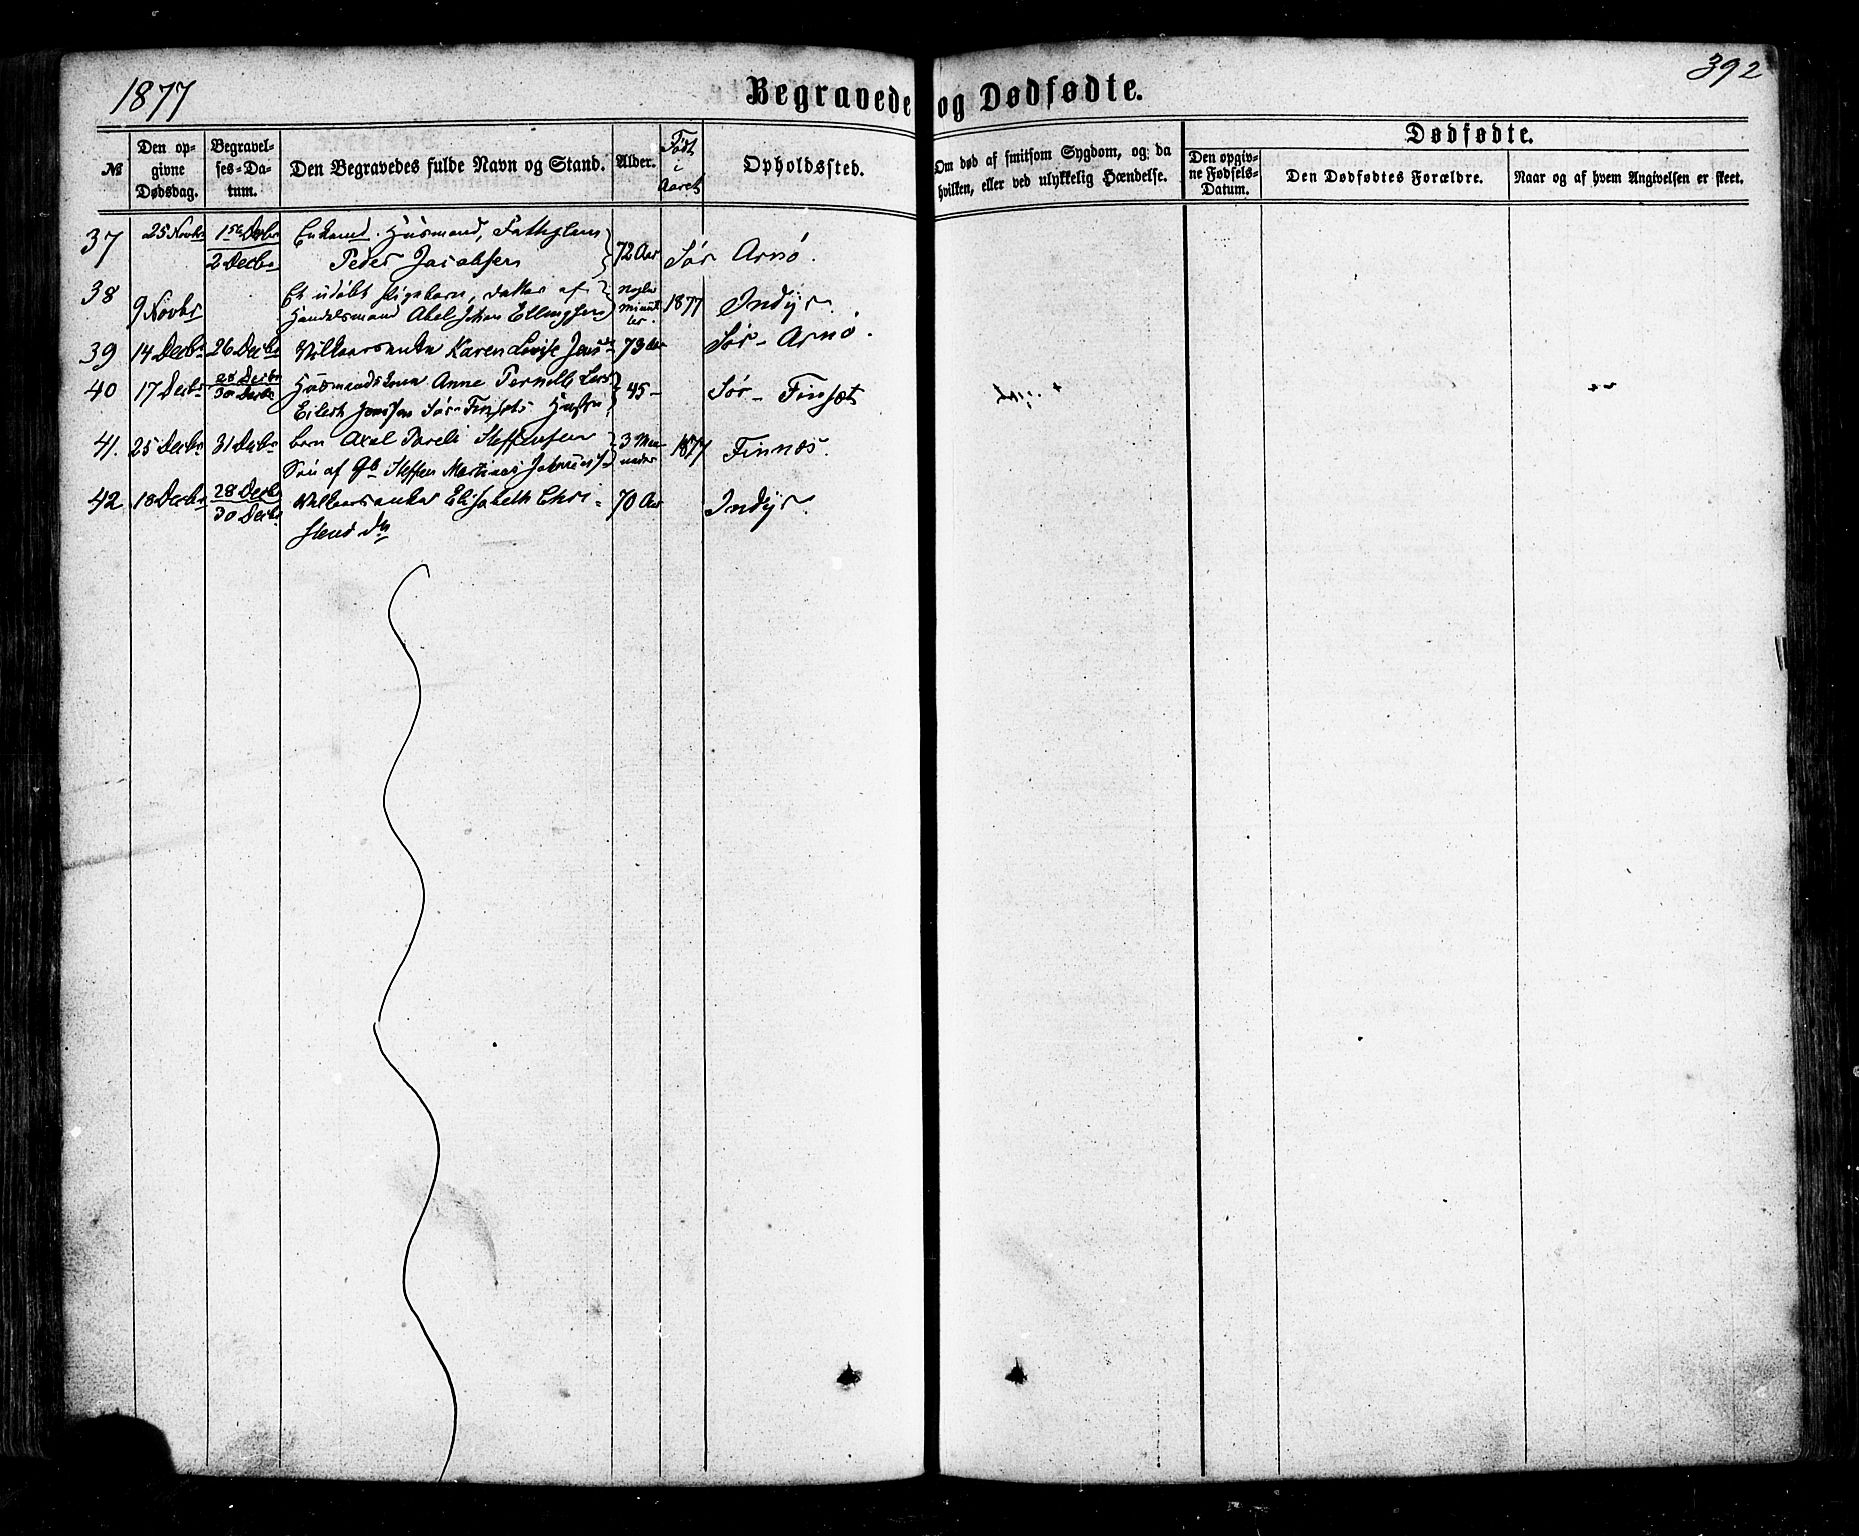 1877
Begravede og Dødfødte.
392
№
Den op-
givne
Dødsdag.
Begravel-
ses-Da-
tum.
Den Begravedes fulde Navn og Stand.
Alder.
Født
i
Aaret
Opholdssted.
Om død af smitsom Sygdom, og da
hvilken, eller ved ulykkelig Hændelse.
Dødfødte.
Den opgiv-
ne Fødsels-
Datum.
Den Dødfødtes Forældre.
Naar og af hvem Angivelsen er skeet.
37 25 Novbr 1ste Decbr Enkemd. Husmand, Fattiglem 72 Aar Sør Arnø.
2 Decbr Peder Jacobsen
38 9 Novbr Et udøbt Pigebarn, datter af nogle 1877 Indyr.
Handelsmand Axel Johan Ellingsen minut-
ter.
39 14 Decbr 26 Decbr Vilkaarsenke Karen Lovise Jens 73 Aar Sør-Arnø.
40 17 Decbr 28 Decbr Husmandskone Anne Pernelle Lars 45- Sør-Finsæt
30 Decbr Eilert Jonssen Sør-Finsæts Hustru
41. 25 Decbr 31 Decbr barn Axel Pareli Steffensen 3 Maa- 1877 Finnæs.
Søn af Gb Steffen Martinus nader
42 18 Decbr 28 Decbr Vilkaarsenke Elisabeth Chri- 70 Aar Indyr.
30 Decbr stensdtr